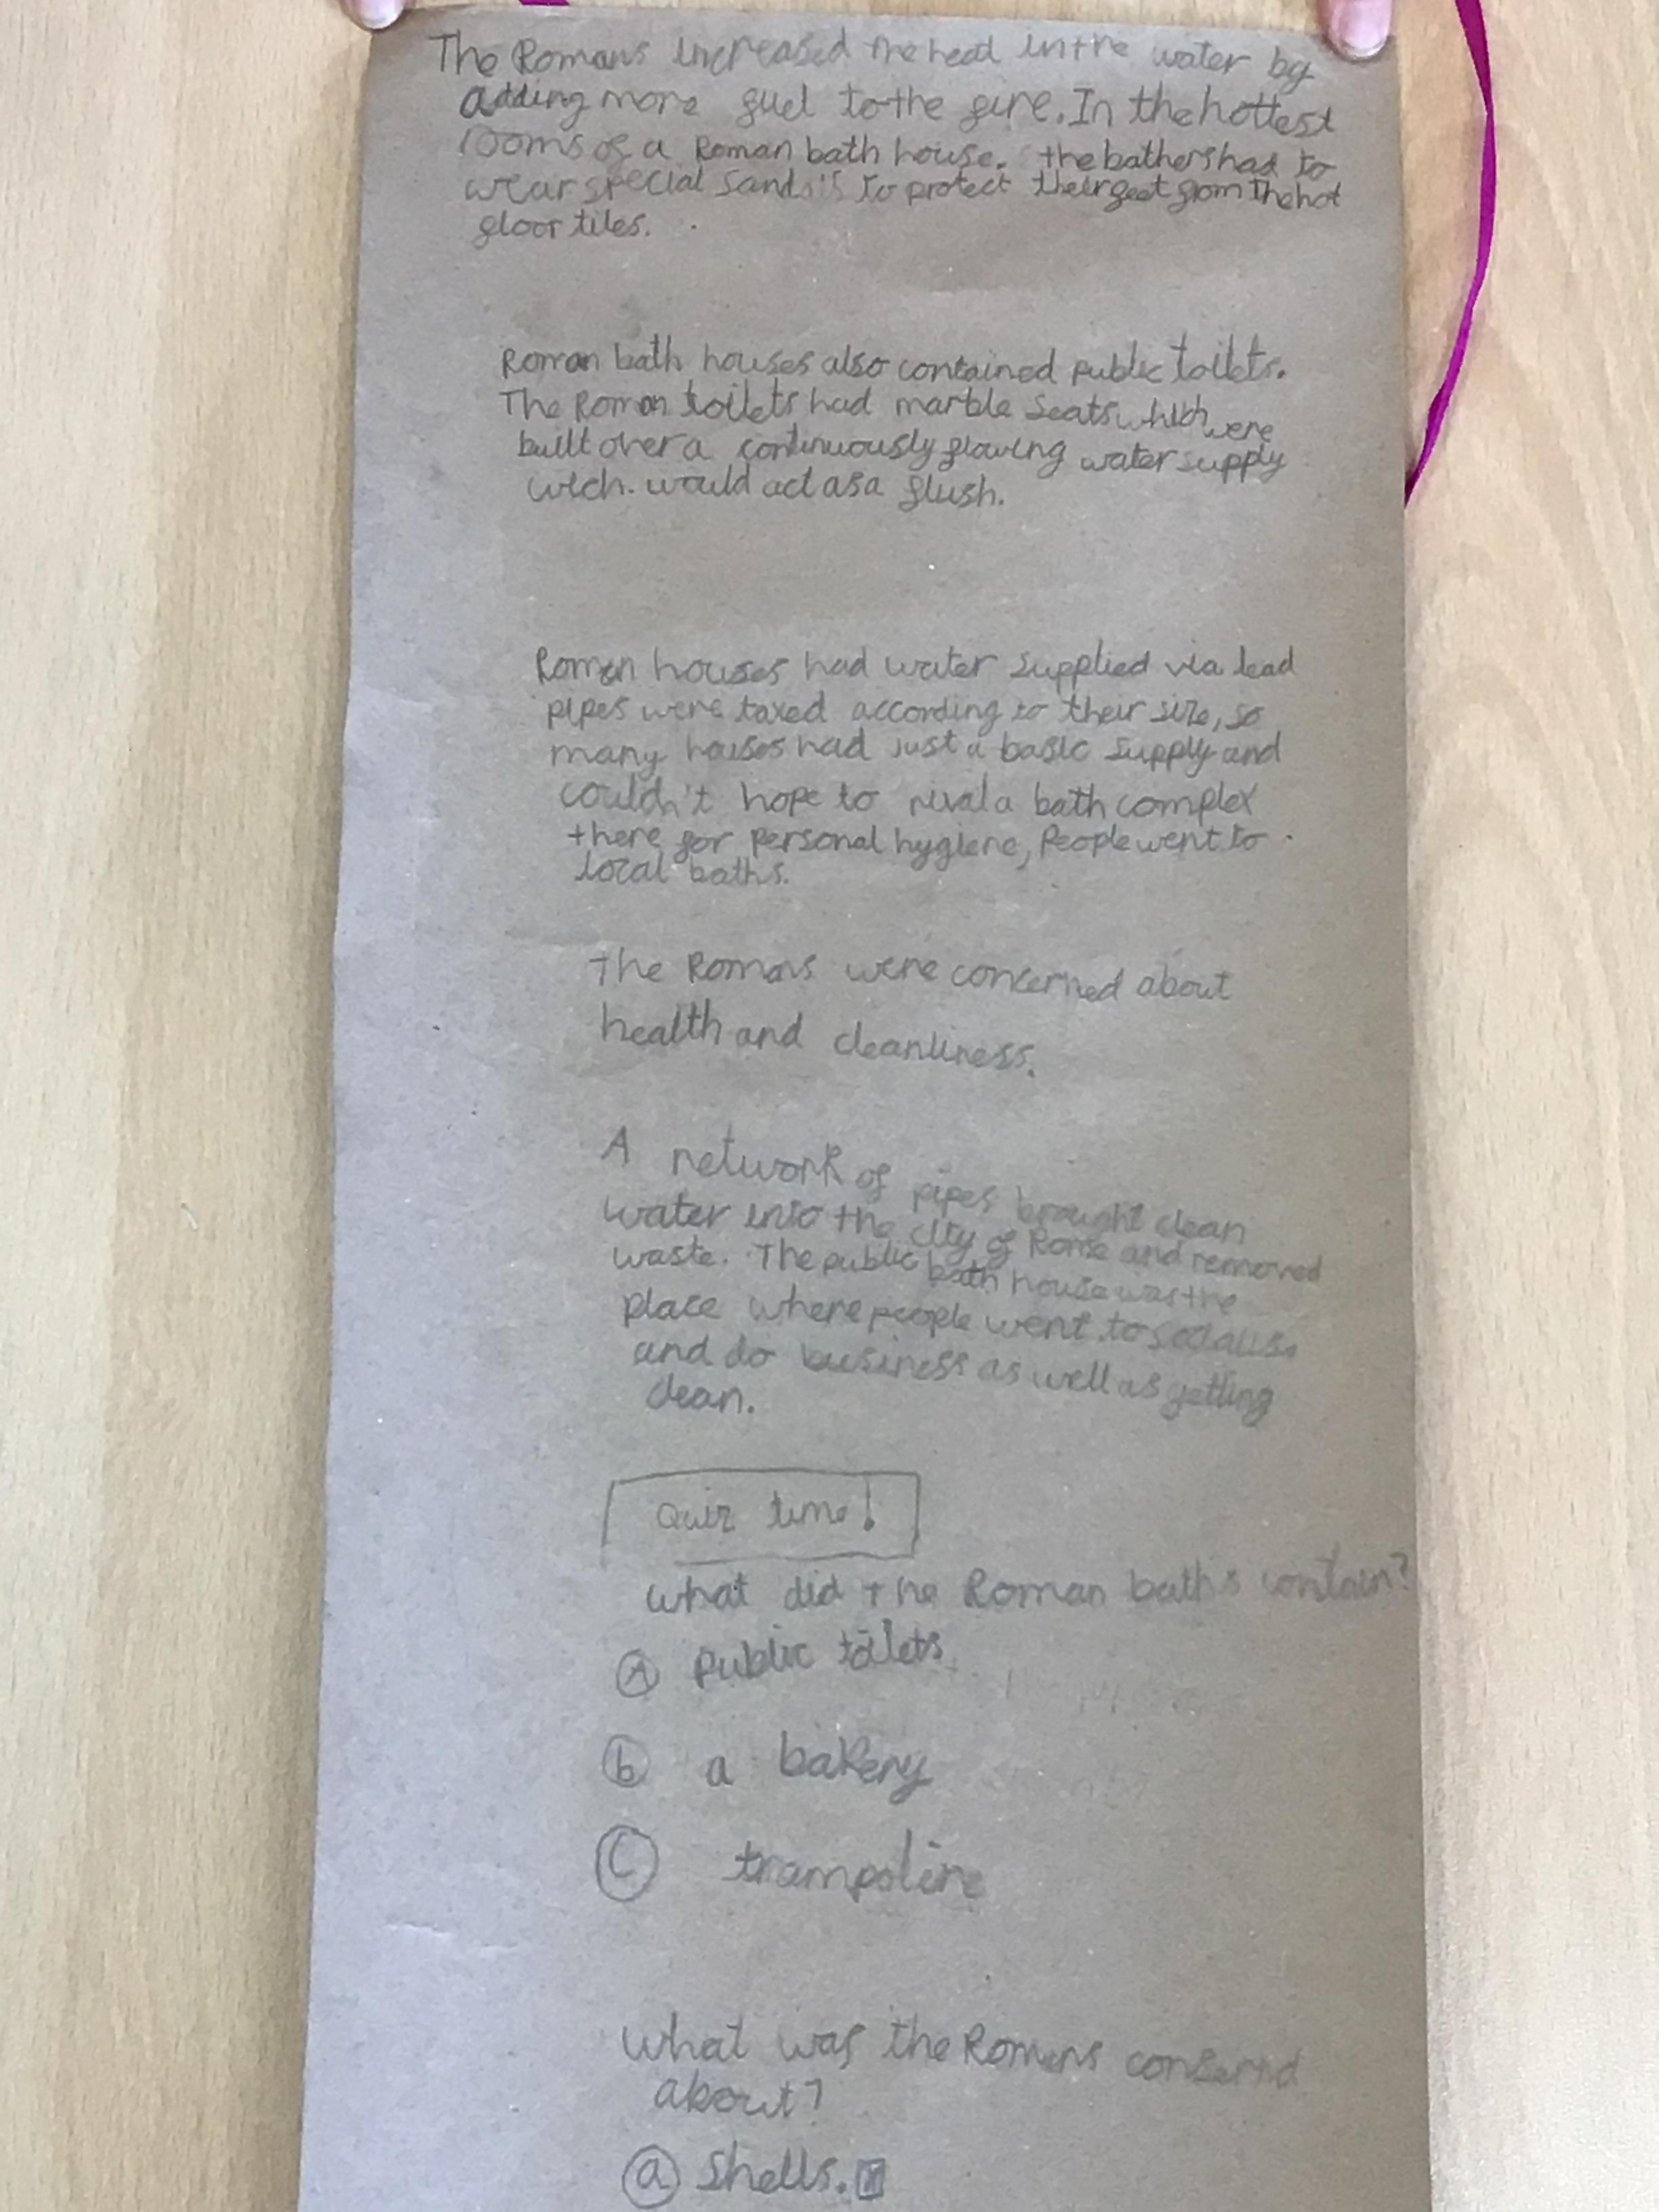 The Romans increased the heat in the water by
adding more fuel to the fire. In the hottest
rooms of a Roman bath house. the bathers had to
wear special sandals to protect their feet from the hot
floor tiles.
Roman bath houses also contained public toilets.
The Roman toilets had marble seats which were
built over a continuously flowing water supply
wich. would act as a flush.
Roman houses had water supplied via lead
pipes were taxed according to their size, so
many houses had just a basic supply and
couldn't hope to rival a bath complex
there for personal hygiene, People went to
local baths.
The Romans were concerned about
health and cleanliness.
A network of pipes brought clean
water into the city of Rome and removed
waste. The public bath house was the
place where people went to socialise
and do business as well as getting
clean.
Quiz time!
What did the Roman baths contain?
A Public toilets
b a bakery
C trampoline
What was the Romans
about?
a Shells.